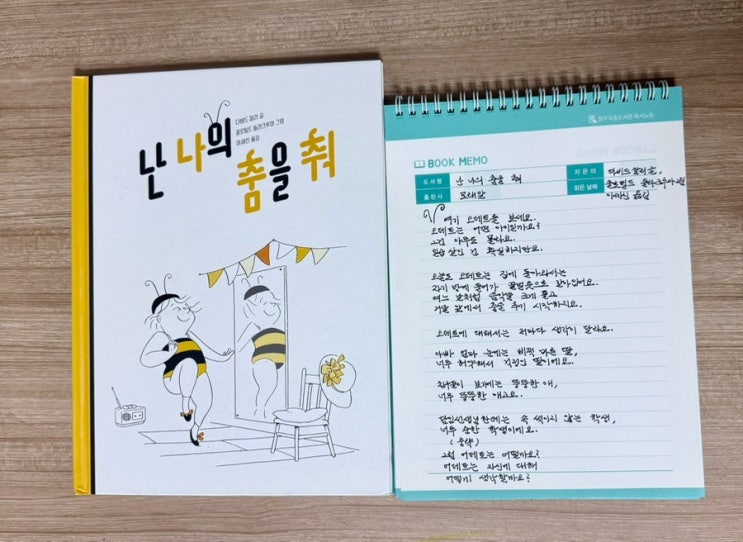 다비드 칼리 글
클로틸드 들라크루아 그림
이세진 옮김
난 나의
춤을 춰
BOOK MEMO
도서명 난 나의 춤을 춰
지은이 다비드 칼리 글,
출판사 모래알
읽은 날짜 클로틸드 들라크루아 그림
이세진 옮김
여기 오데트를 보세요.
오데트는 어떤 아이일까요?
그건 아무도 몰라요.
일곱 살인 건 확실하지만요.
오늘도 오데트는 집에 돌아와서는
자기 방에 들어가 꿀벌 옷으로 갈아입어요.
여느 날처럼 음악을 크게 틀고
거울 앞에서 춤을 추기 시작하지요.
오데트에 대해서는 저마다 생각이 달라요.
아빠 엄마 눈에는 비쩍 마른 딸,
너무 허약해서 걱정인 딸이에요.
친구들이 보기에는 뚱뚱한 애,
너무 뚱뚱한 애고요.
담임선생님한테는 속 썩이지 않는 학생,
너무 순한 학생이에요.
(중략)
그럼 오데트는 어떨까요?
오데트는 자신에 대해
어떻게 생각할까요?